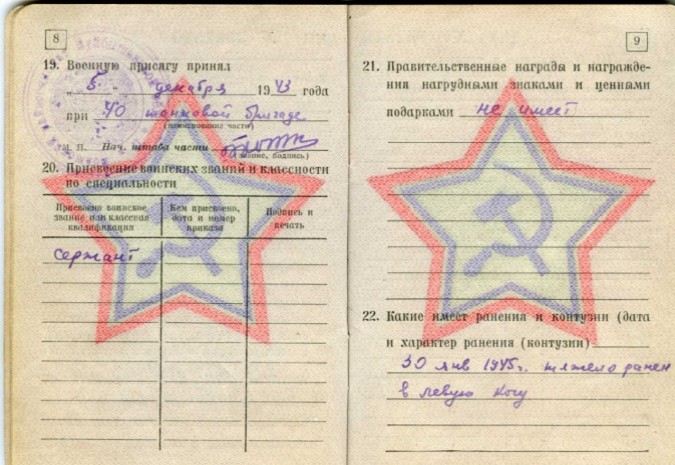 8
19. Военную присягу принял
„ 5. „ декабря 1943 года
при 40 танковой бригаде
(наименование части)
М. П. Нач. штаба части
(звание, подпись)
20. Присвоение воинских званий и классности
по специальности
Присвоено воинское
звание или классная
квалификация
Кем присвоено,
дата и номер
приказа
Подпись и
печать
сержант
9
21. Правительственные награды и награжде-
ния нагрудными знаками и ценными
подарками не имеет
22. Какие имеет ранения и контузии (дата
и характер ранения (контузии)
30 янв 1945г. тяжело ранен
в левую ногу